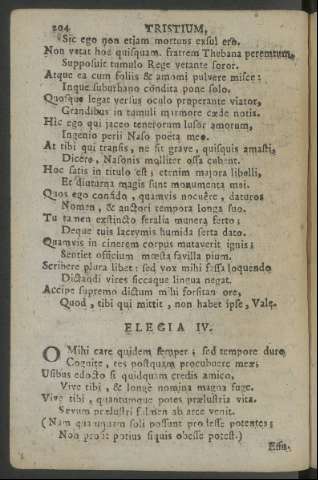 204 TRISTIUM,
Sic ego non etjam mortuus exsul ero.
Non vetat hoc quisquam. fratrem Thebana peremtum,
Supposuit tumulo Rege vetante soror.
Atque ea cum foliis & amomi pulvere misce:
Inque suburbano condita pone solo.
Quosque legat versus oculo properante viator,
Grandibus in tumuli marmore cæde notis.
Hic ego qui jaceo tenerorum lusor amorum,
Ingenio perii Naso poëta meo.
At tibi qui transis, ne sit grave, quisquis amasti,
Dicere, Nasonis molliter ossa cubent.
Hoc satis in titulo est; etenim majora libelli,
Et diuturna magis sunt monumenta mei.
Quos ego confido, quamvis nocuêre, daturos
Nomen, & auctori tempora longa suo.
Tu tamen exstincto feralia munera ferto:
Deque tuis lacrymis humida serta dato.
Quamvis in cinerem corpus mutaverit ignis;
Sentiet officium mœsta favilla pium.
Scribere plura libet: sed vox mihi fessa loquendo
Dictandi vires siccaque lingua negat.
Accipe supremo dictum mihi forsitan ore,
Quod, tibi qui mittit, non habet ipse, Vale.
ELEGIA IV.
O Mihi care quidem semper; sed tempore duro
Cognite, res postquam procubuere meæ;
Usibus edocto si quidquam credis amico,
Vive tibi, & longè nomina magna fuge.
Vive tibi, quantumque potes prælustria vita.
Sævum prælustri fulmen ab arce venit.
(Nam quanquam soli possunt prodesse potentes;
Non prosit potius siquis obesse potest.)
Effu-